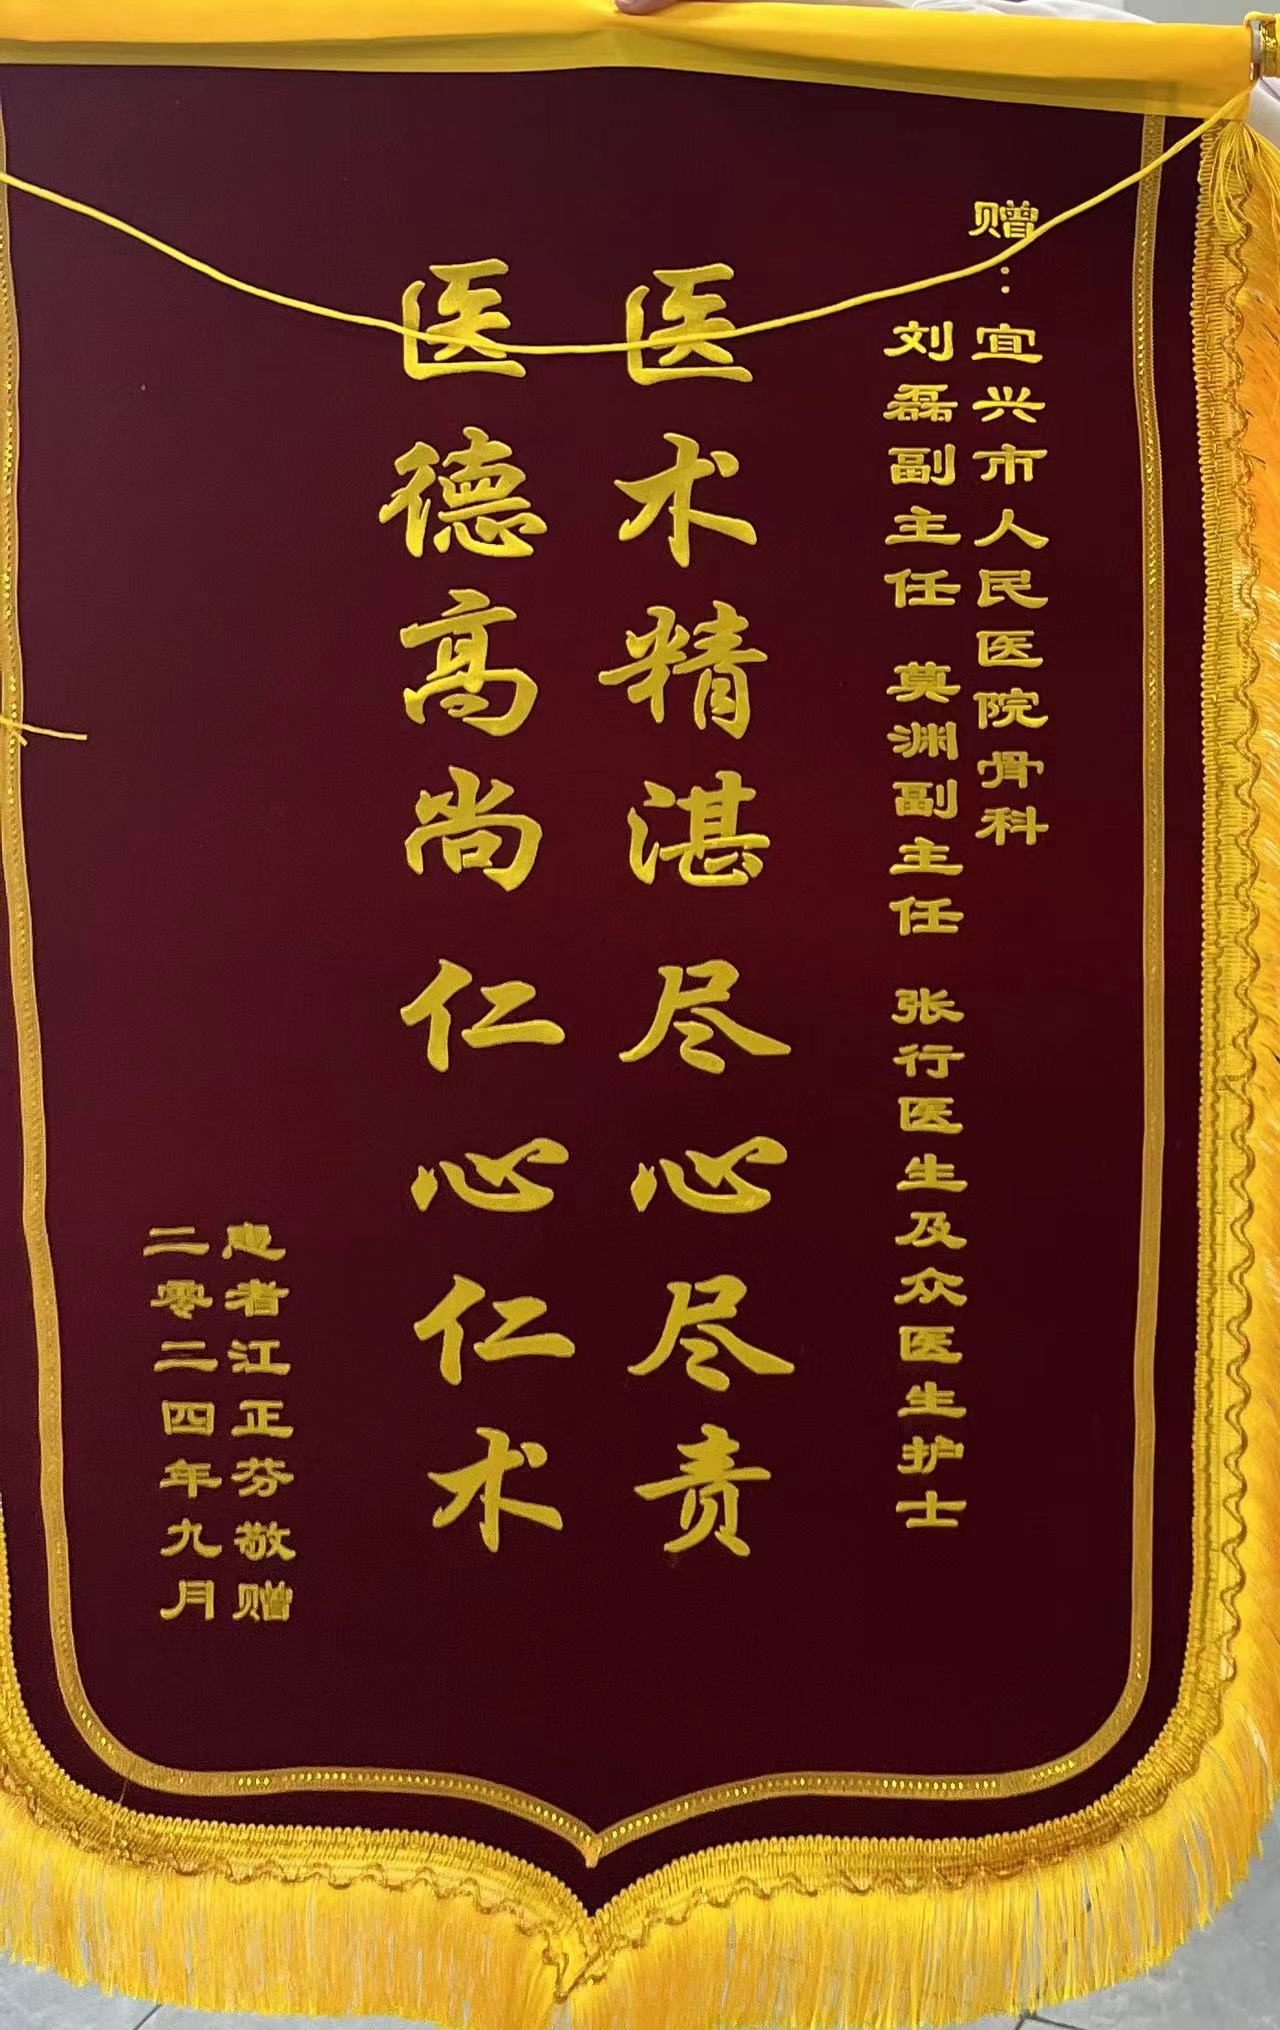 赠：宜兴市人民医院骨科
刘磊副主任 莫渊副主任 张行医生及众医生护士
医术精湛尽心尽责
医德高尚仁心仁术
患者江正芬敬赠
二零二四年九月